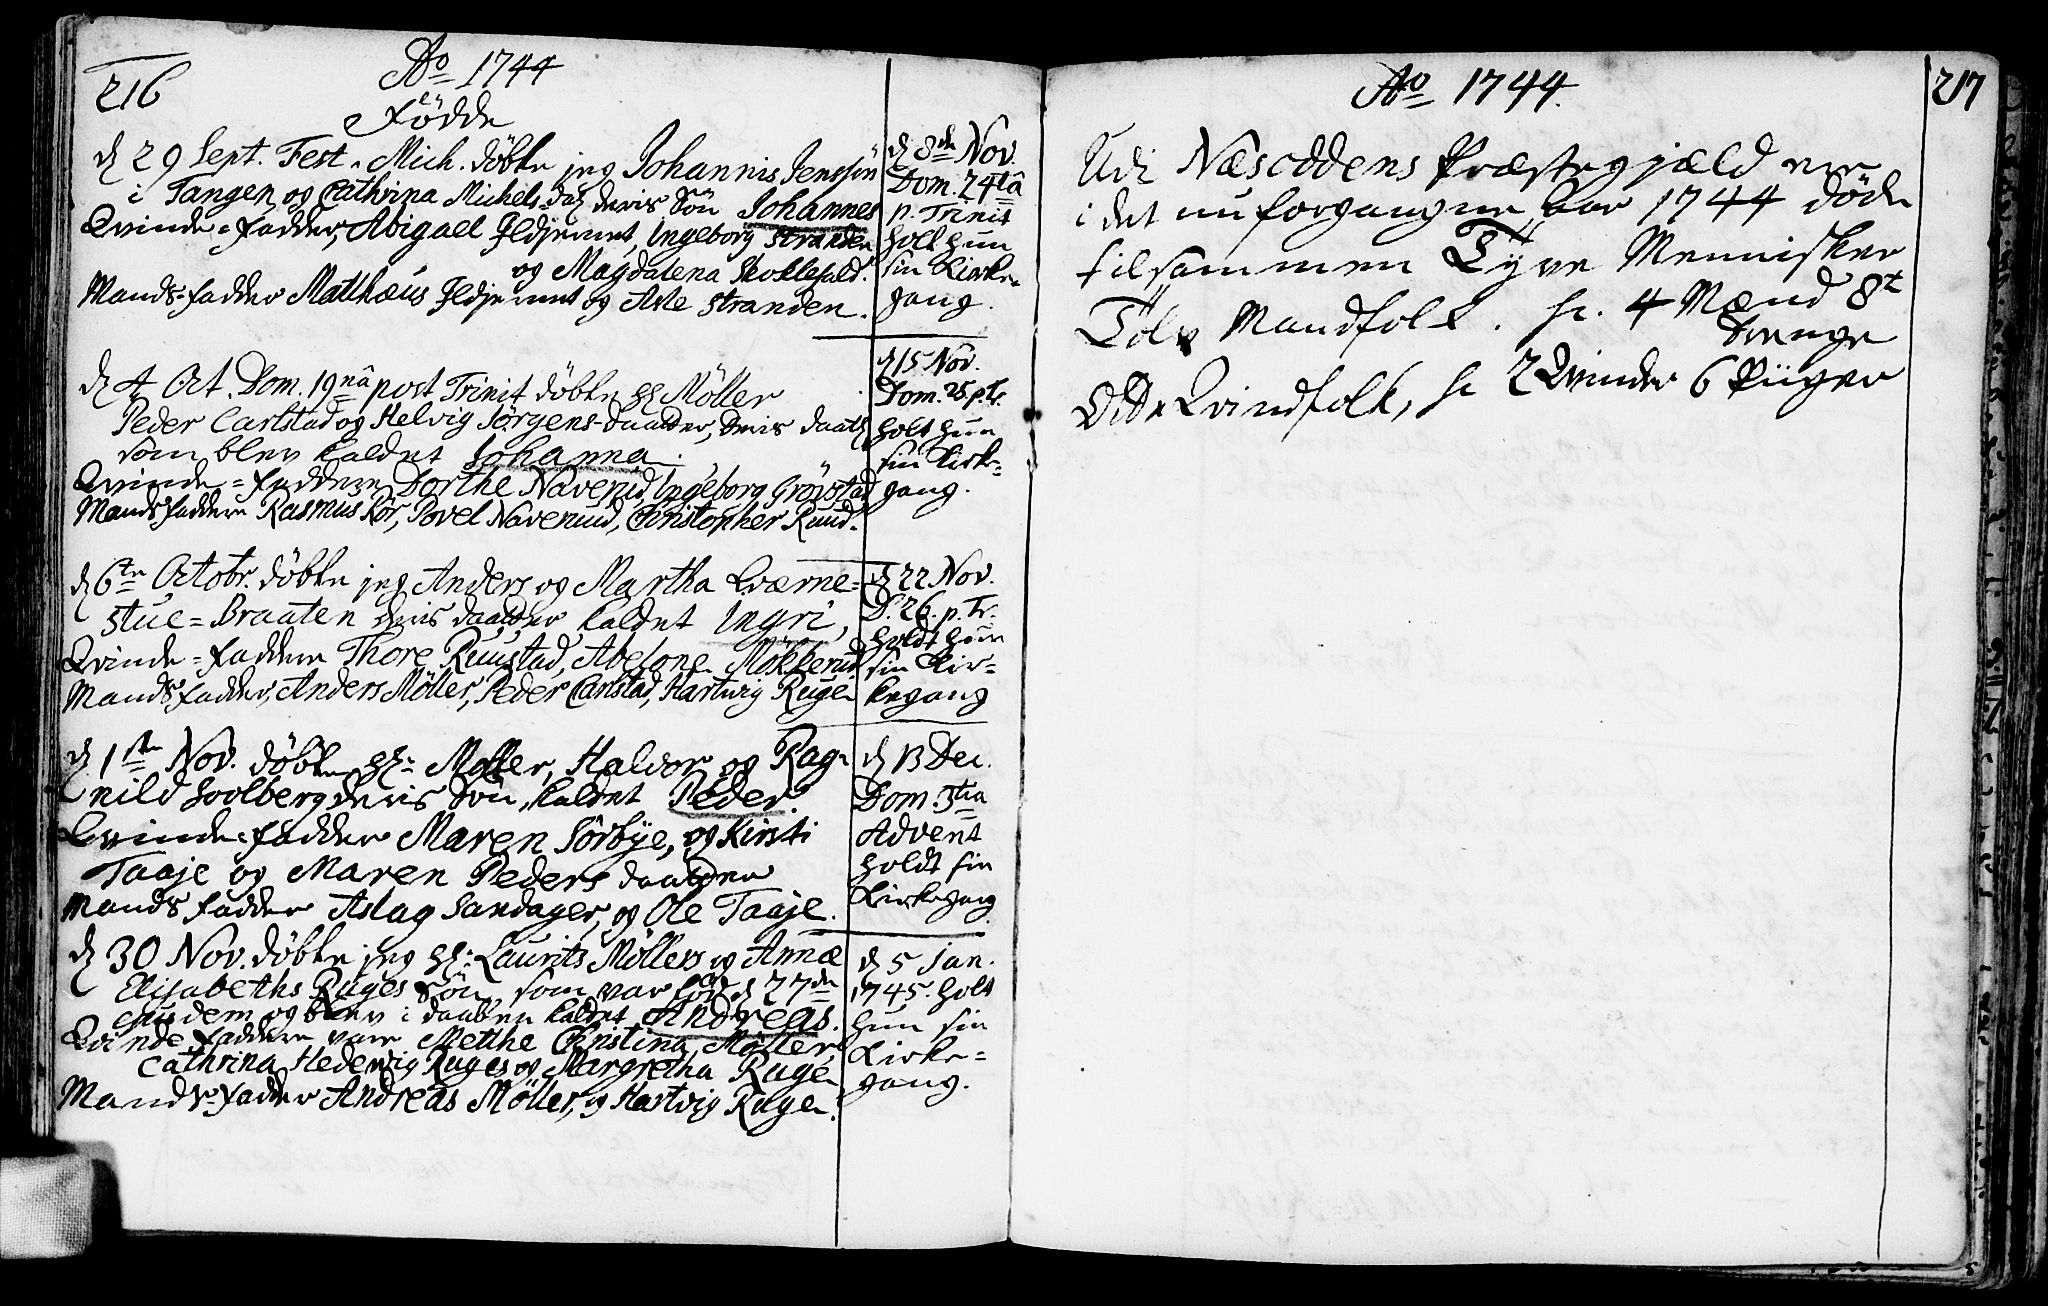 216
Aº 1744
Födde
d 29 Sept. Fest. Mich. döbte jeg Johannis Jenssön
i Tangen og Cathrina Michels-dat deris Sön Johannes
Qvinde-fadder, Abigael Ildjernet, Ingeborg Stranden
og Magdalena Skoklefald.
Mands-fadder Matthæus Ildjernet og Asle Stranden.
d 8de Nov.
Dom. 24tâ
p. Trinit
holt hun
sin Kirke-
gang.
d 4 Oct. Dom. 19nâ post Trinit döbte Hr Möller
Peder Carlstad og Helvig Jörgens-daatter, deris daatr
som blev kaldet Johanna.
Qvinde-faddere Dorthe Naverud, Ingeborg Grövstad
Mandsfaddere Rasmus Rör, Povel Naverud, Christopher Ruud.
d 15 Nov.
Dom. 25 p. Tr.
holt hun
sin Kirke-
gang.
d 6te Octobr. döbte jeg Anders og Martha Qværne-
stue-Braaten deris daatter kaldet Ingri,
Qvinde-faddere Thore Ruustad, Abelone Mökkerud
Mandsfadder, Anders Möller, Peder Carlstad, Hartvig Ruge.
d 22 Nov.
D. 26. p. Tr.
holdt hun
sin Kir-
kegang
d 1ste Nov. döbte Hr: Möller, Haldor og Rag-
nild Soolberg deris Sön, kaldet Peder.
Qvinde-fadder Maren Sörbye, og Kirsti
Taaje og Maren Peders daatter
Mands fadder Aslag Sandager, og Ole Taaje.
d 13 Dec.
Dom. 3tia
Advent
holdt sin
Kirkegang
d 30 Nov. döbte jeg Hr: Laurits Möllers og Annæ
Elisabeths Ruges Sön, som var föd d 27de
ejusdem og blev i daaben kaldet Andreas.
Qvinde faddere vare Metthe Christina Möller,
Cathrina Hedevig Ruges og Margretha Ruge
Mands-fadder Andreas Möller, og Hartvig Ruge.
d 5 Jan.
1745. holt
hun sin
Kirke-
gang.
Aº 1744.
217
Udi Næsoddens Præstegjæld ere
i det nu forgangne Aar 1744 döde
tilsammen Tyve Mennisker
Tolv Mandfolk. sc. 4 Mænd 8t
Drenge
Otte Qvindfolk, sc 2 Qvinder 6 Piiger